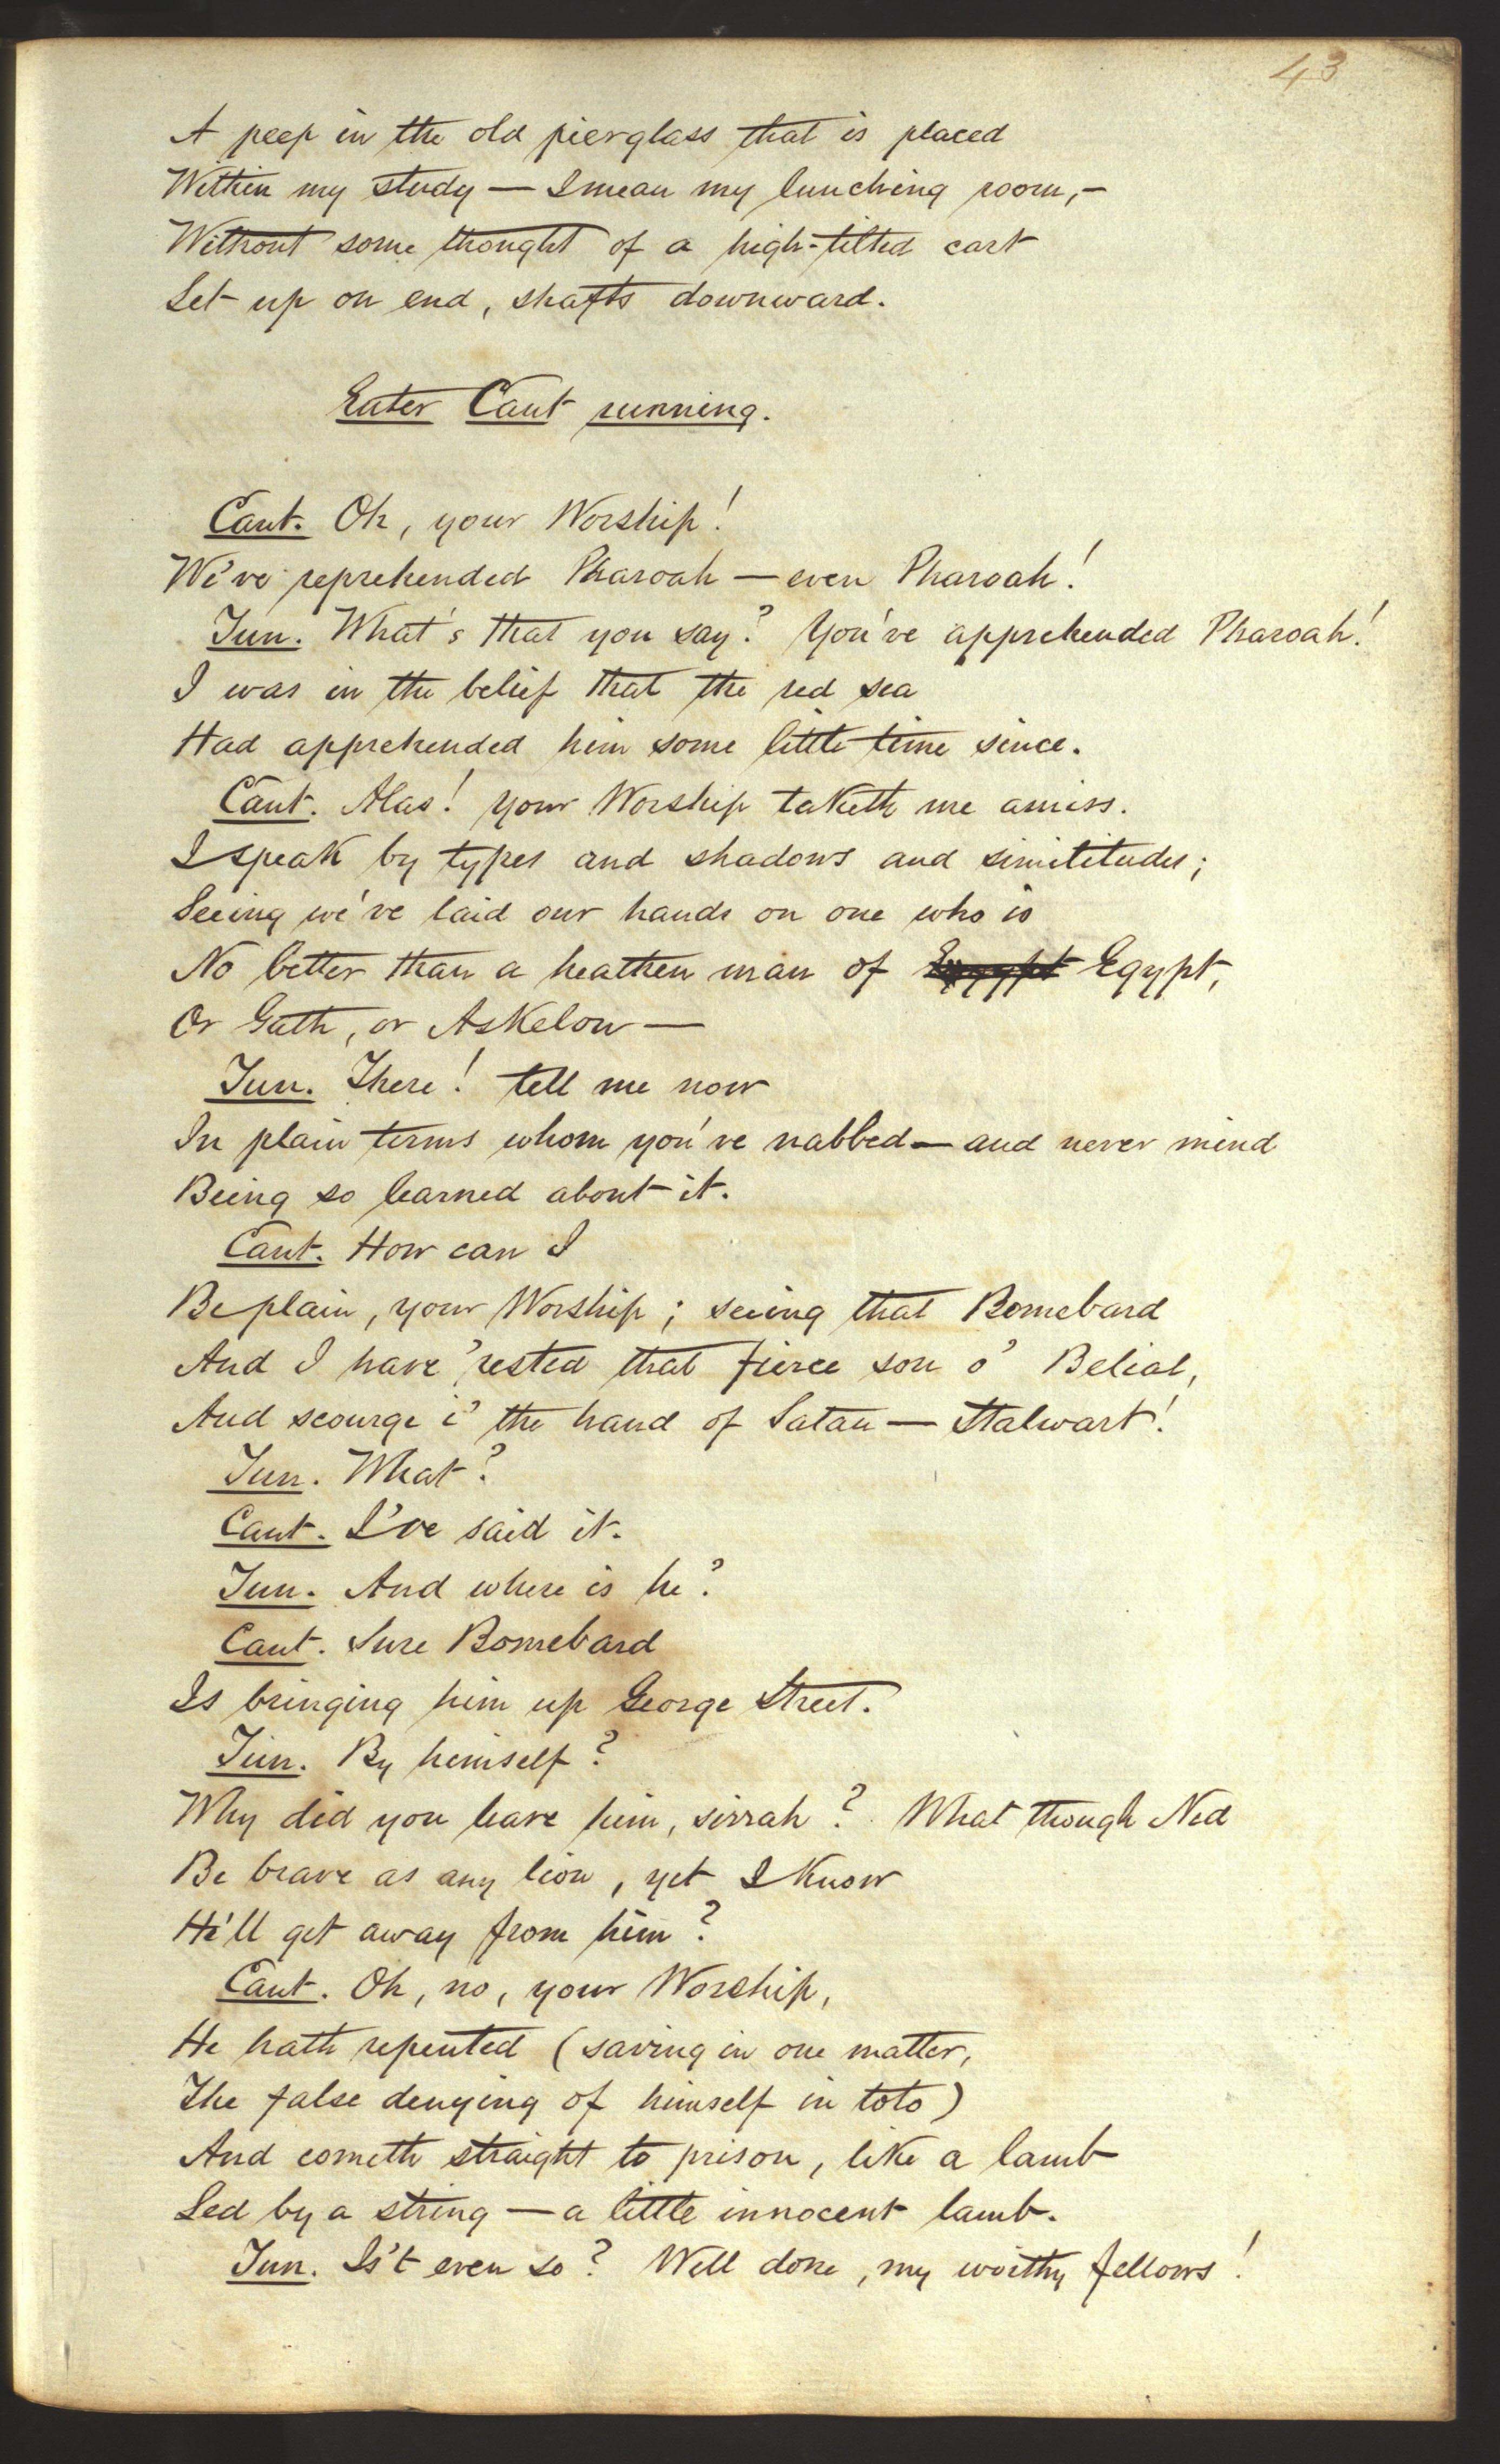 43
A peep in the old pierglass that is placed
Within my study — I mean my lunching room, –
Without some thought of a high-tilted cart
Set up on end, shafts downward.
Enter Cant running.
Cant. Oh, your Worship!
We've reprehended Pharoah — even Pharoah!
Tun. What's that you say? You've apprehended Pharoah!
I was in the belief that the red sea
Had apprehended him some little time since.
Cant. Alas! your Worship taketh me amiss.
I speak by types and shadows and similitudes;
Seeing we've laid our hands on one who is
No better than a heathen man of Egypt Egypt,
Or Gath, or Askelon —
Tun. There! tell me now
In plain terms whom you've nabbed — and never mind
Being so learned about it.
Cant. How can I
Be plain, your Worship; seeing that Bomebard
And I have 'rested that fierce son o' Belial,
And scourge i' the hand of Satan — Stalwart!
Tun. What?
Cant. I've said it.
Tun. And where is he?
Cant. Sure Bomebard
Is bringing him up George Street.
Tun. By himself?
Why did you leave him, sirrah? What though Ned
Be brave as any lion, yet I know
He'll get away from him?
Cant. Oh, no, your Worship,
He hath repented (saving in one matter,
The false denying of himself in toto)
And cometh straight to prison, like a lamb
Led by a string — a little innocent lamb.
Tun. Is't even so? Well done, my worthy fellows!